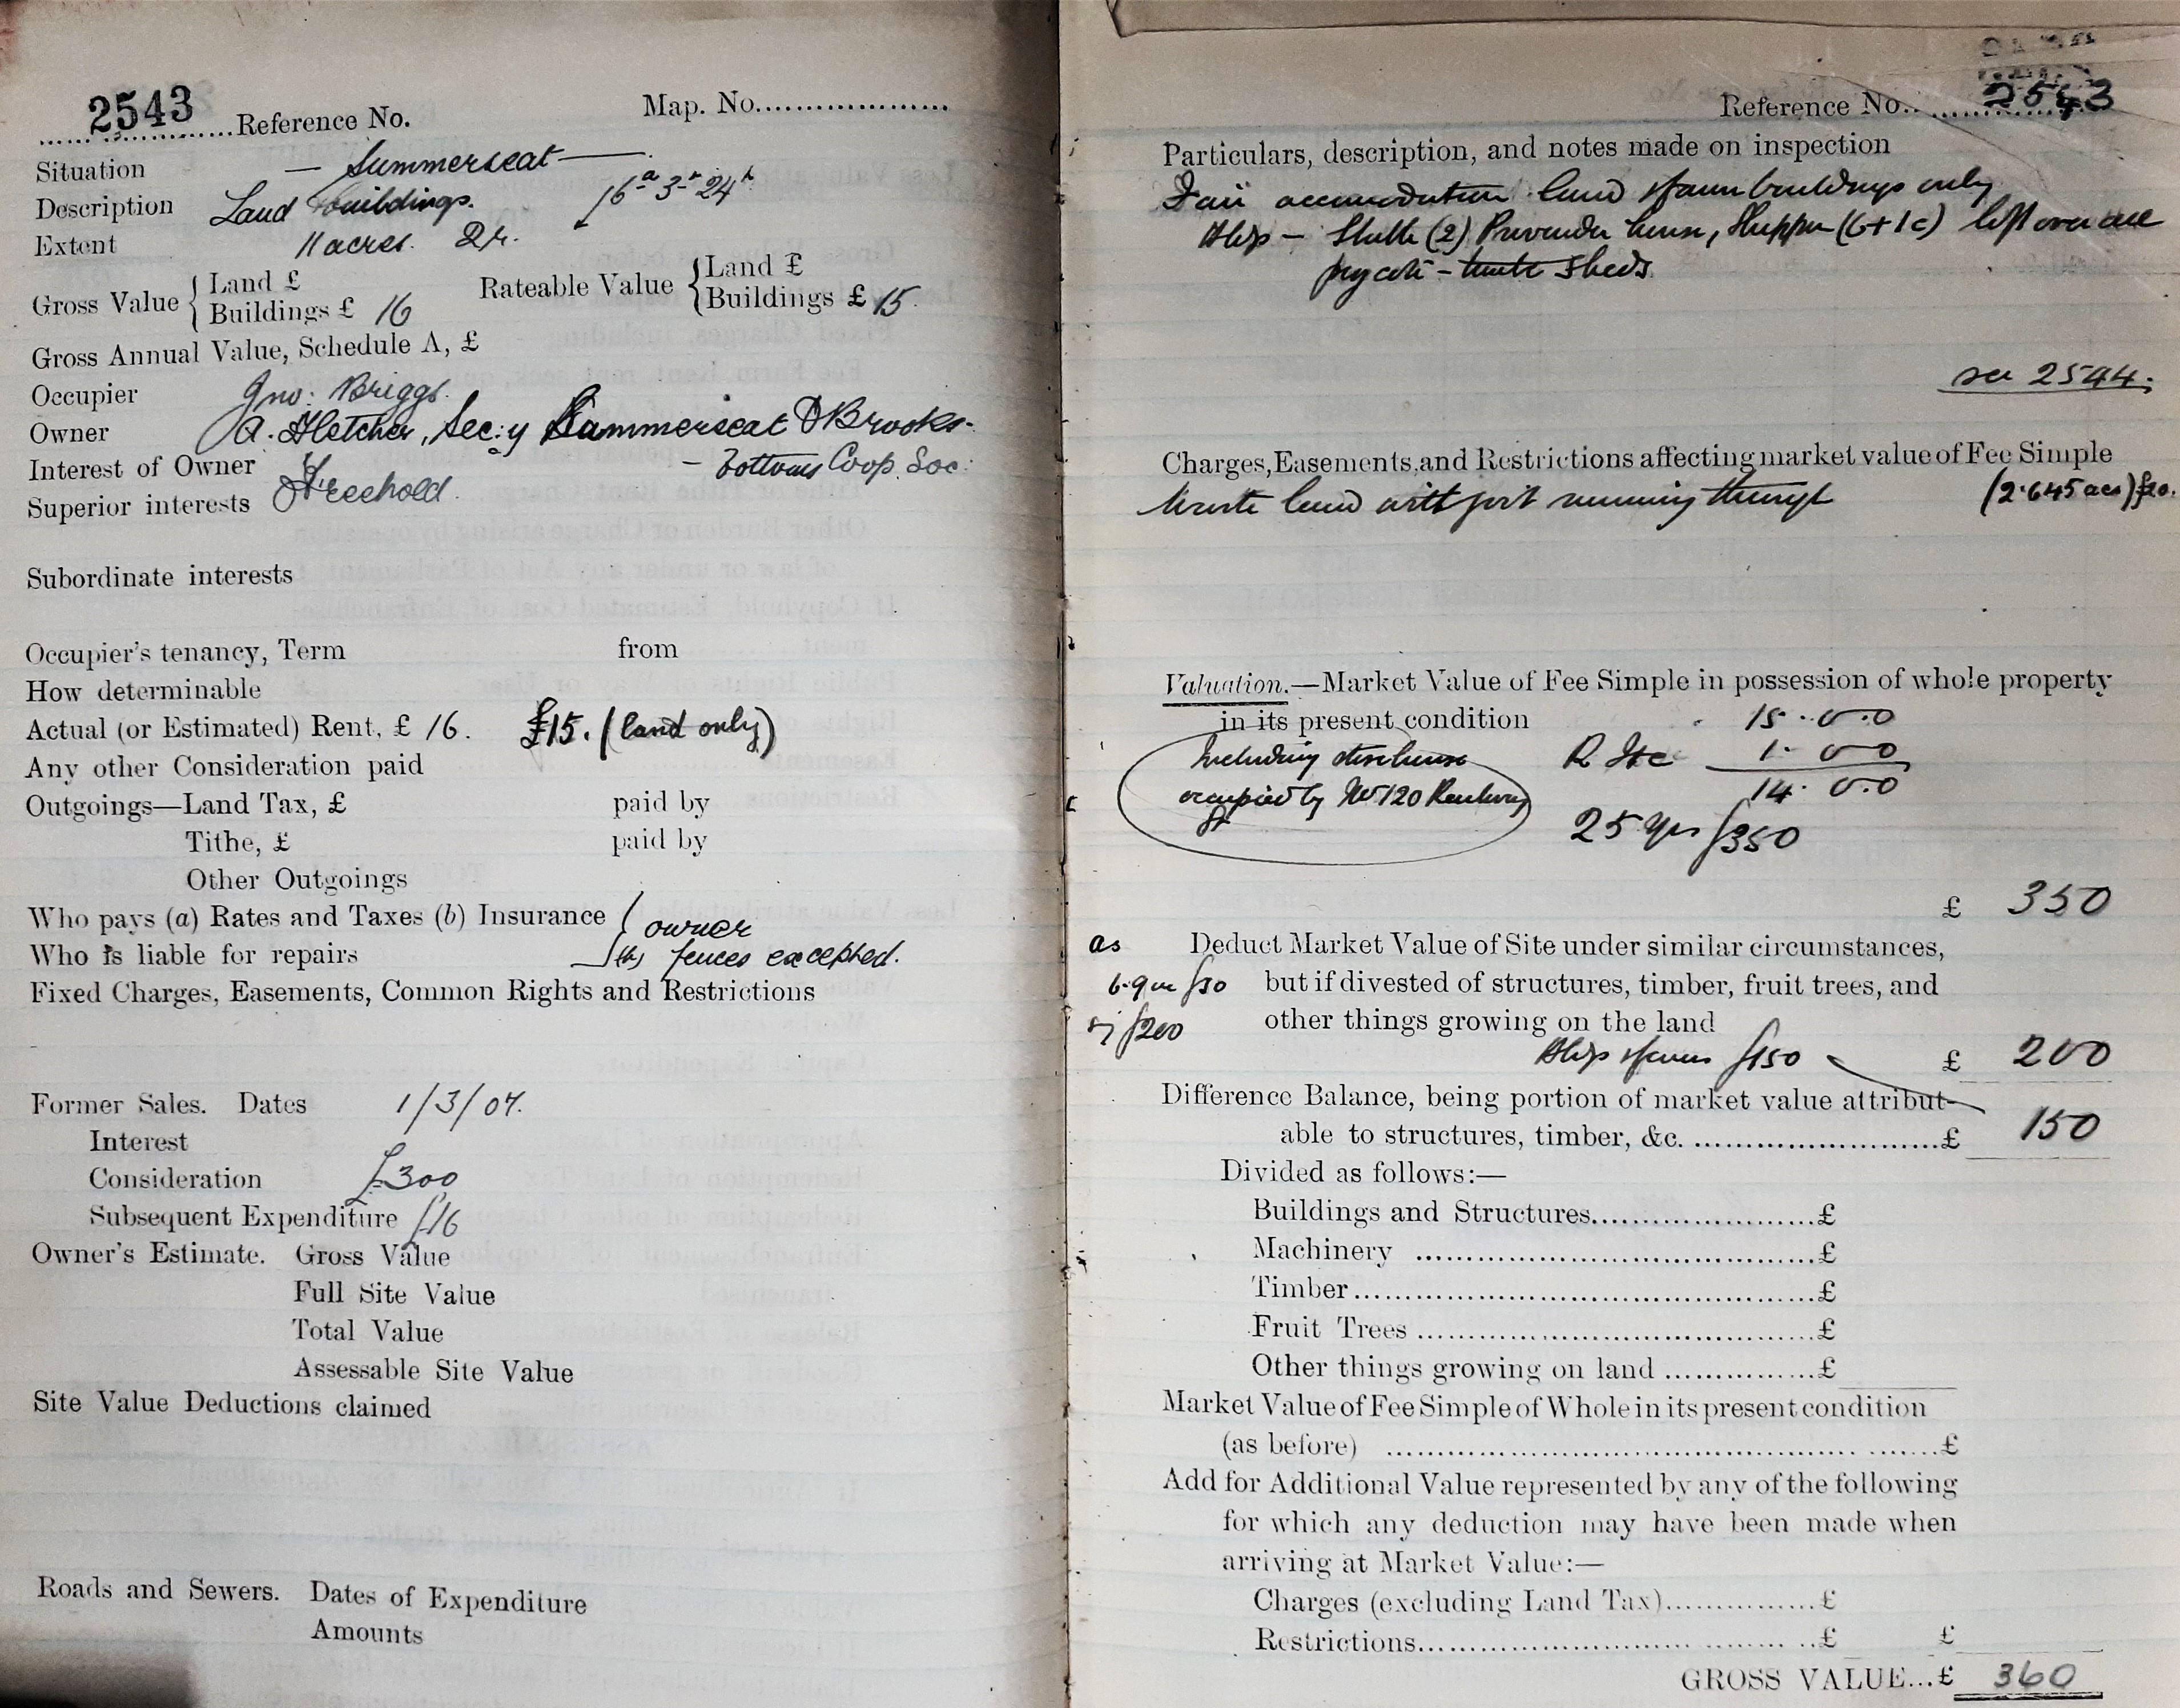 2543 Reference No. Map. No.
Situation — Summerseat —
Description Land & buildings. 16a 3r 24p
Extent 11 acres. 2r.
Gross Value { Land £ Rateable Value { Land £
Buildings £ 16 Buildings £ 15
Gross Annual Value, Schedule A, £
Occupier Jno: Briggs.
Owner A. Fletcher, Sec:y Summerseat & Brooks-
Interest of Owner Freehold. - bottoms Coop. Soc:
Superior interests
Subordinate interests
Occupier's tenancy, Term from
How determinable
Actual (or Estimated) Rent, £ 16. £15. (land only)
Any other Consideration paid
Outgoings—Land Tax, £ paid by
Tithe, £ paid by
Other Outgoings
Who pays (a) Rates and Taxes (b) Insurance owner
Who is liable for repairs fences excepted.
Fixed Charges, Easements, Common Rights and Restrictions
Former Sales. Dates 1/3/07.
Interest
Consideration £300
Subsequent Expenditure £16
Owner's Estimate. Gross Value
Full Site Value
Total Value
Assessable Site Value
Site Value Deductions claimed
Roads and Sewers. Dates of Expenditure
Amounts
Reference No. 2543
Particulars, description, and notes made on inspection
Fair accomodation land & farm buildings only
Bldgs — Stable (2) Provender house, Shippon (6+1c) loft over all
pigcote - sheds.
see 2544.
Charges, Easements, and Restrictions affecting market value of Fee Simple
Waste land with running through (2.645 acs) £20.
Valuation.—Market Value of Fee Simple in possession of whole property
in its present condition 15.0.0
Including R &c 1.0.0
occupied by No 120 Railway 14.0.0
St 25 yrs £350
£ 350
as Deduct Market Value of Site under similar circumstances,
but if divested of structures, timber, fruit trees, and
£200 other things growing on the land
Bldgs & fences £150 £ 200
Difference Balance, being portion of market value attribut-
able to structures, timber, &c. £ 150
Divided as follows:—
Buildings and Structures £
Machinery £
Timber £
Fruit Trees £
Other things growing on land £
Market Value of Fee Simple of Whole in its present condition
(as before) £
Add for Additional Value represented by any of the following
for which any deduction may have been made when
arriving at Market Value:—
Charges (excluding Land Tax) £
Restrictions £ £
GROSS VALUE... £ 360